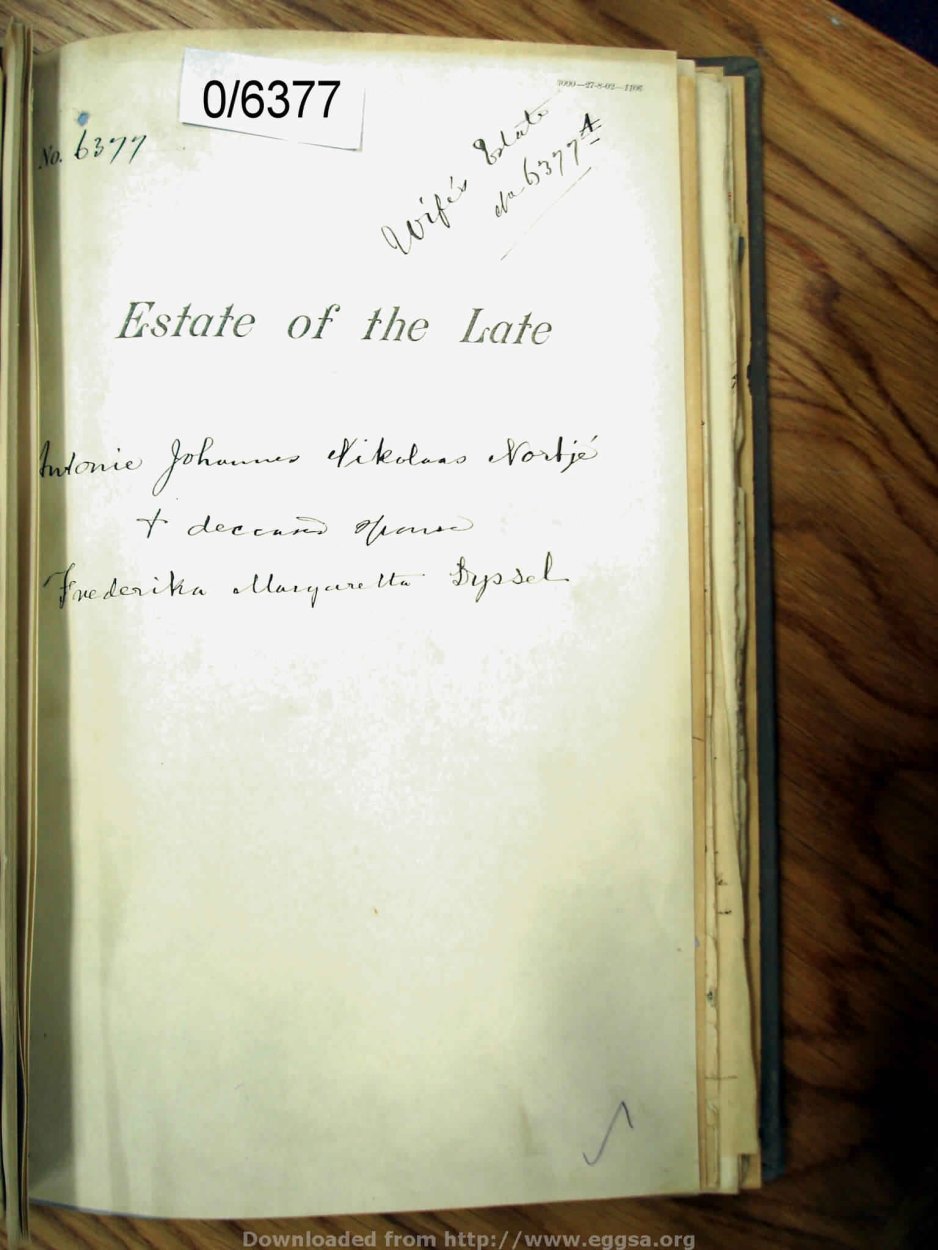 0/6377
3000—27-8-02—1106
No. 6377
Wife's Estate
No 6377 A
Estate of the Late
Antonie Johannes Nikolaas Nortjé
+ deceased spouse
Frederika Margaretta Dyssel
Downloaded from http://www.eggsa.org